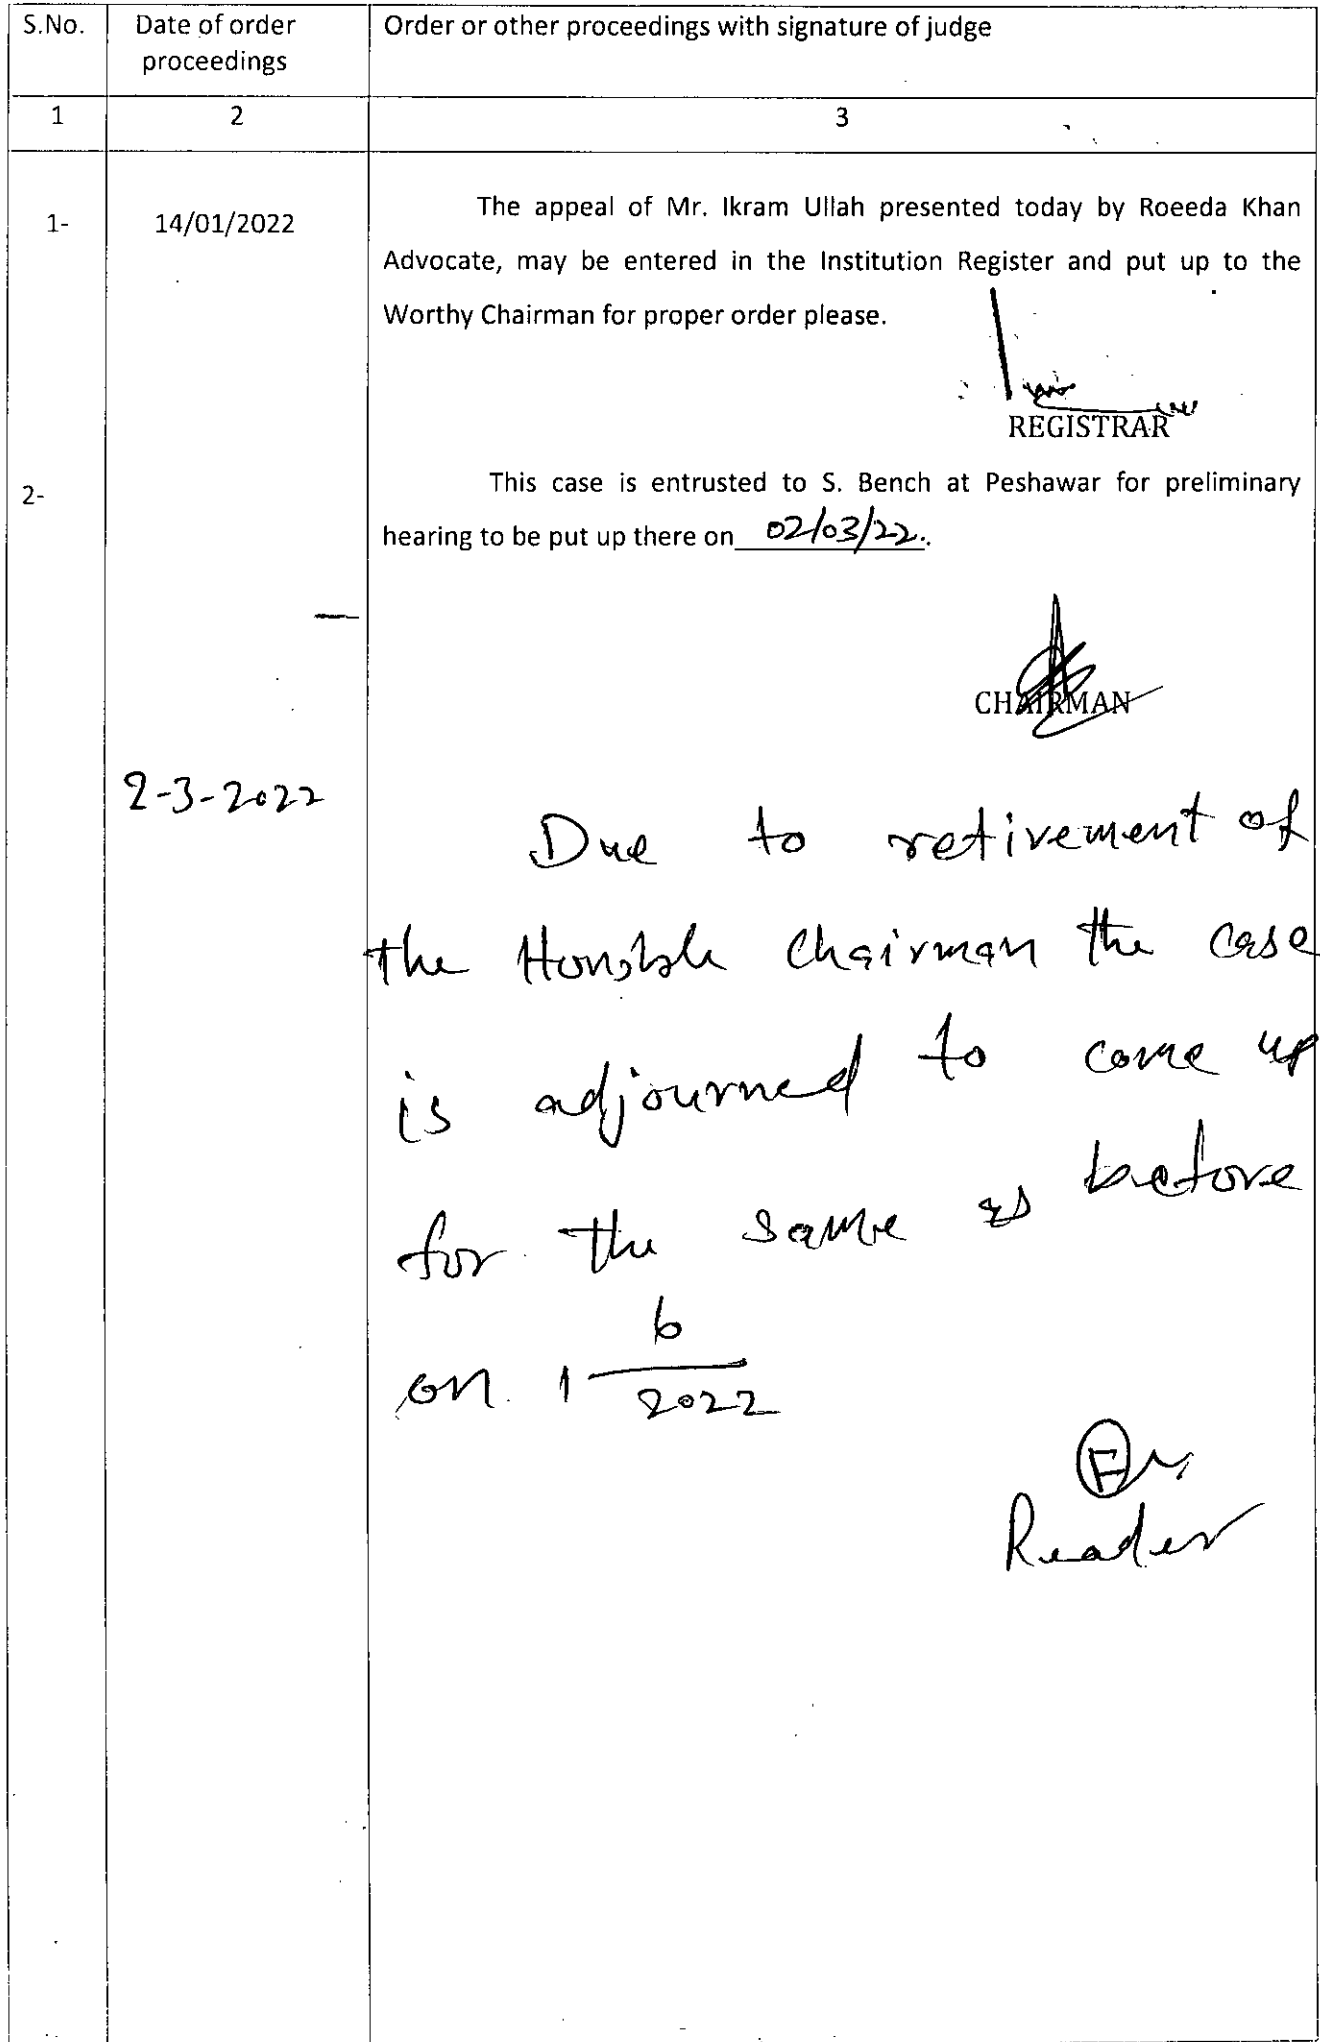 S.No. Date of order Order or other proceedings with signature of judge
proceedings
1 2 3
1- 14/01/2022 The appeal of Mr. Ikram Ullah presented today by Roeeda Khan
Advocate, may be entered in the Institution Register and put up to the
Worthy Chairman for proper order please.
REGISTRAR
2- This case is entrusted to S. Bench at Peshawar for preliminary
hearing to be put up there on 02/03/22.
CHAIRMAN
2-3-2022
Due to retirement of
the Honoble Chairman the case
is adjourned to come up
for the same as before
on 1 6
2022
Reader